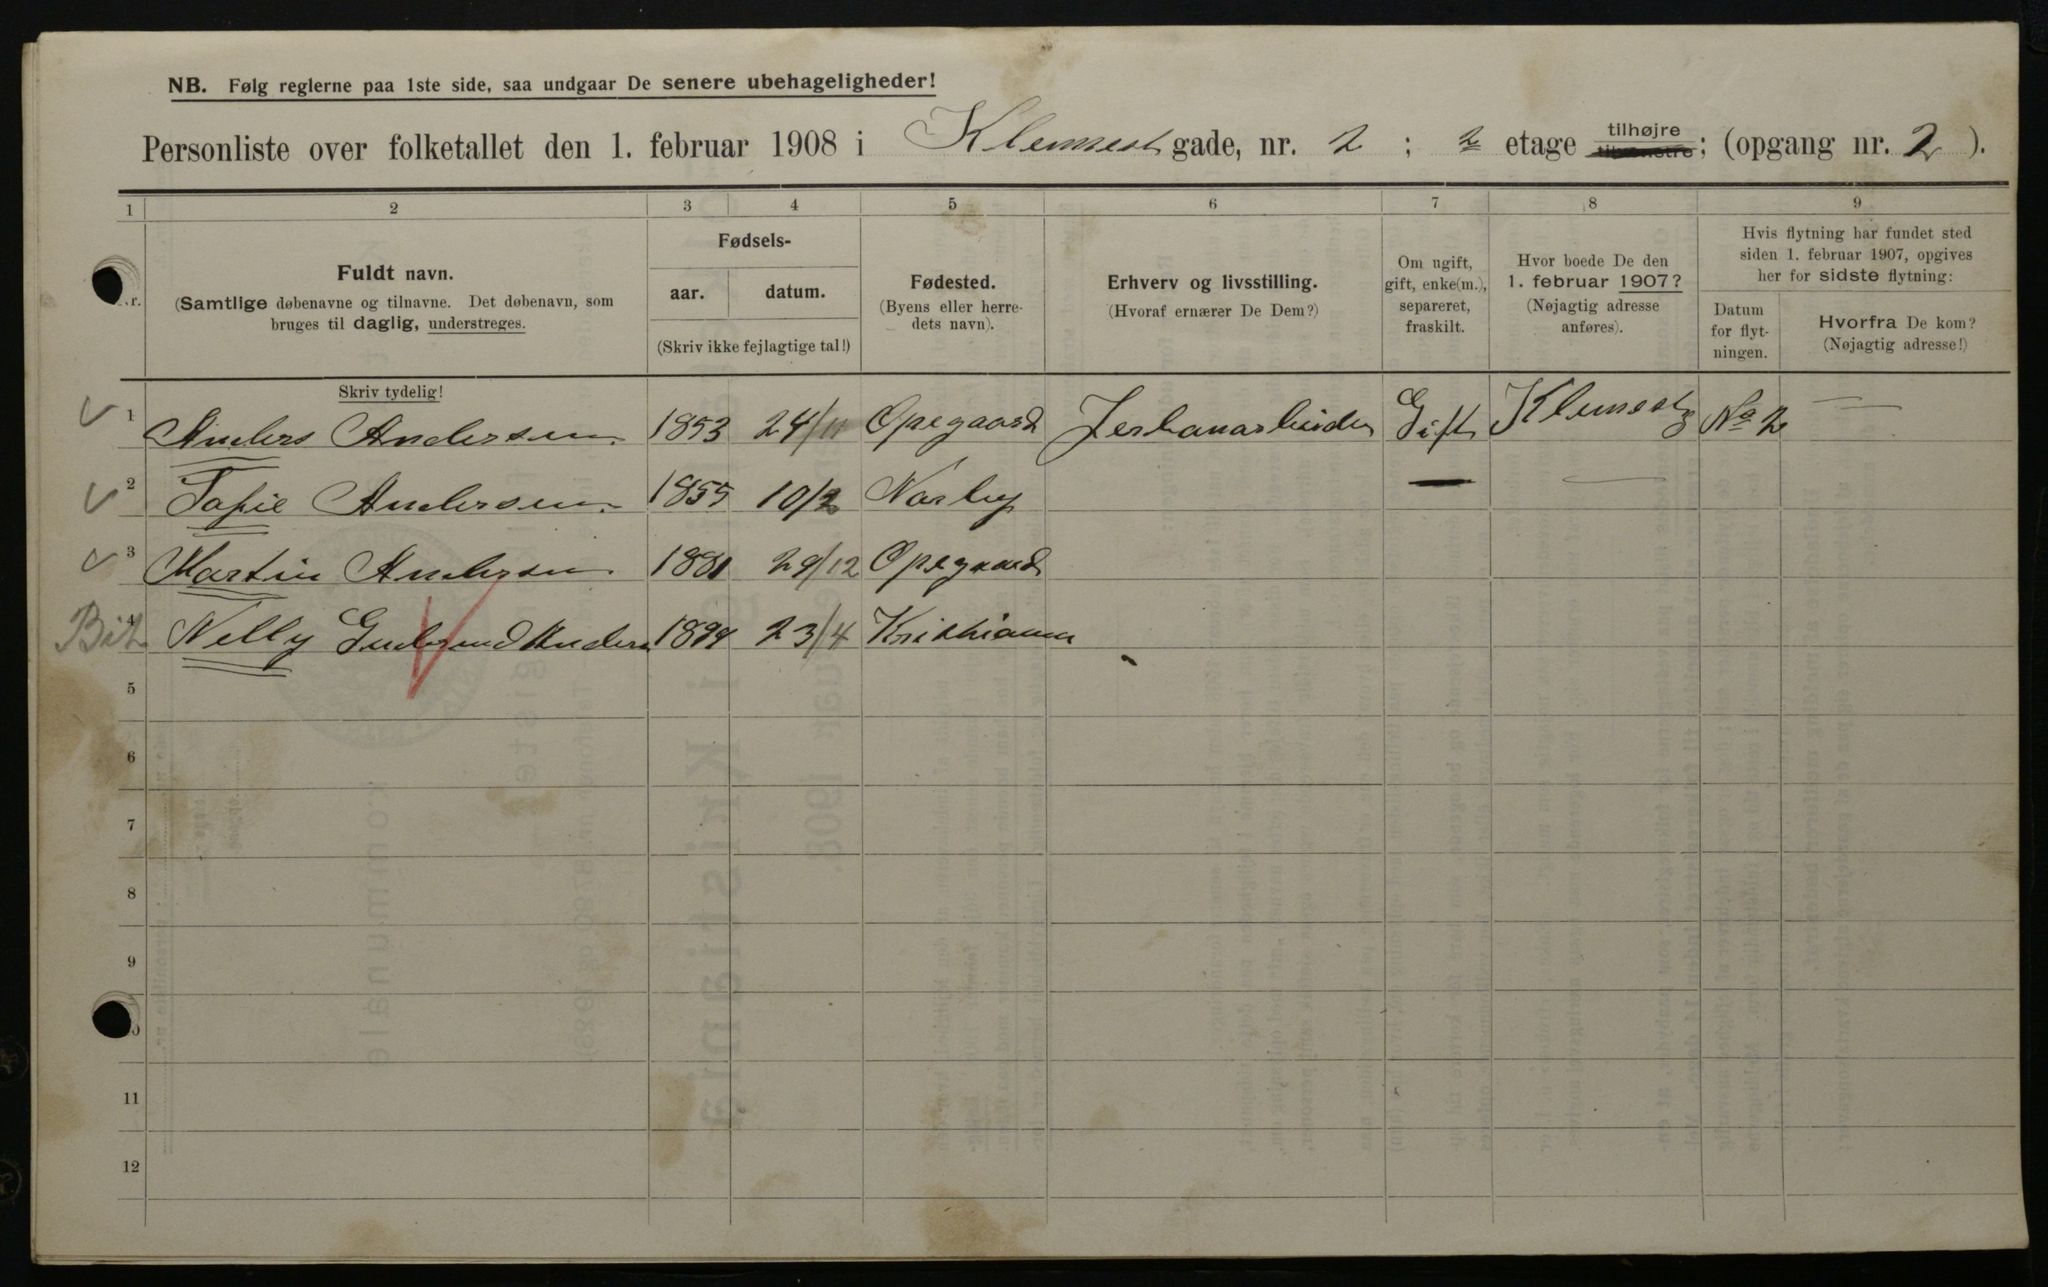 NB. Følg reglerne paa 1ste side, saa undgaar De senere ubehageligheder!
Personliste over folketallet den 1. februar 1908 i Klemestgade, nr. 2; 2 etage tilhøjre tilvenstre; (opgang nr. 2).
1 2 3 4 5 6 7 8 9
Nr.
Fuldt navn.
(Samtlige døbenavne og tilnavne. Det døbenavn, som
bruges til daglig, understreges.
Fødsels-
aar. datum.
(Skriv ikke fejlagtige tal!)
Fødested.
(Byens eller herre-
dets navn).
Erhverv og livsstilling.
(Hvoraf ernærer De Dem?)
Om ugift,
gift, enke(m.),
separeret,
fraskilt.
Hvor boede De den
1. februar 1907?
(Nøjagtig adresse
anføres).
Hvis flytning har fundet sted
siden 1. februar 1907, opgives
her for sidste flytning:
Datum
for flyt-
ningen.
Hvorfra De kom?
(Nøjagtig adresse!)
Skriv tydelig!
1 Anders Andersen 1853 24/11 Opegaard Jerbanarbeider Gift Klemestg No 2 —
2 Sofie Andersen 1855 10/2 Narby — —
3 Martin Andersen 1881 29/12 Opegaard
Bit 4 Nelly Anders 1894 23/4 Kristiania
5
6
7
8
9
10
11
12